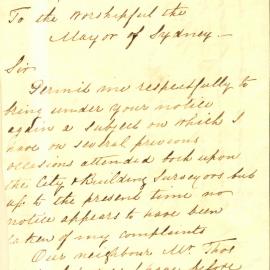 To the Worshipful the
Mayor of Sydney —
Sir
Permit me respectfully to
bring under your notice
again a subject on which I
have on several previous
occasions attended both upon
the City & Building Surveyors but
up to the present time no
notice appears to have been
taken of my complaints
Our neighbour Mr. Thos
before